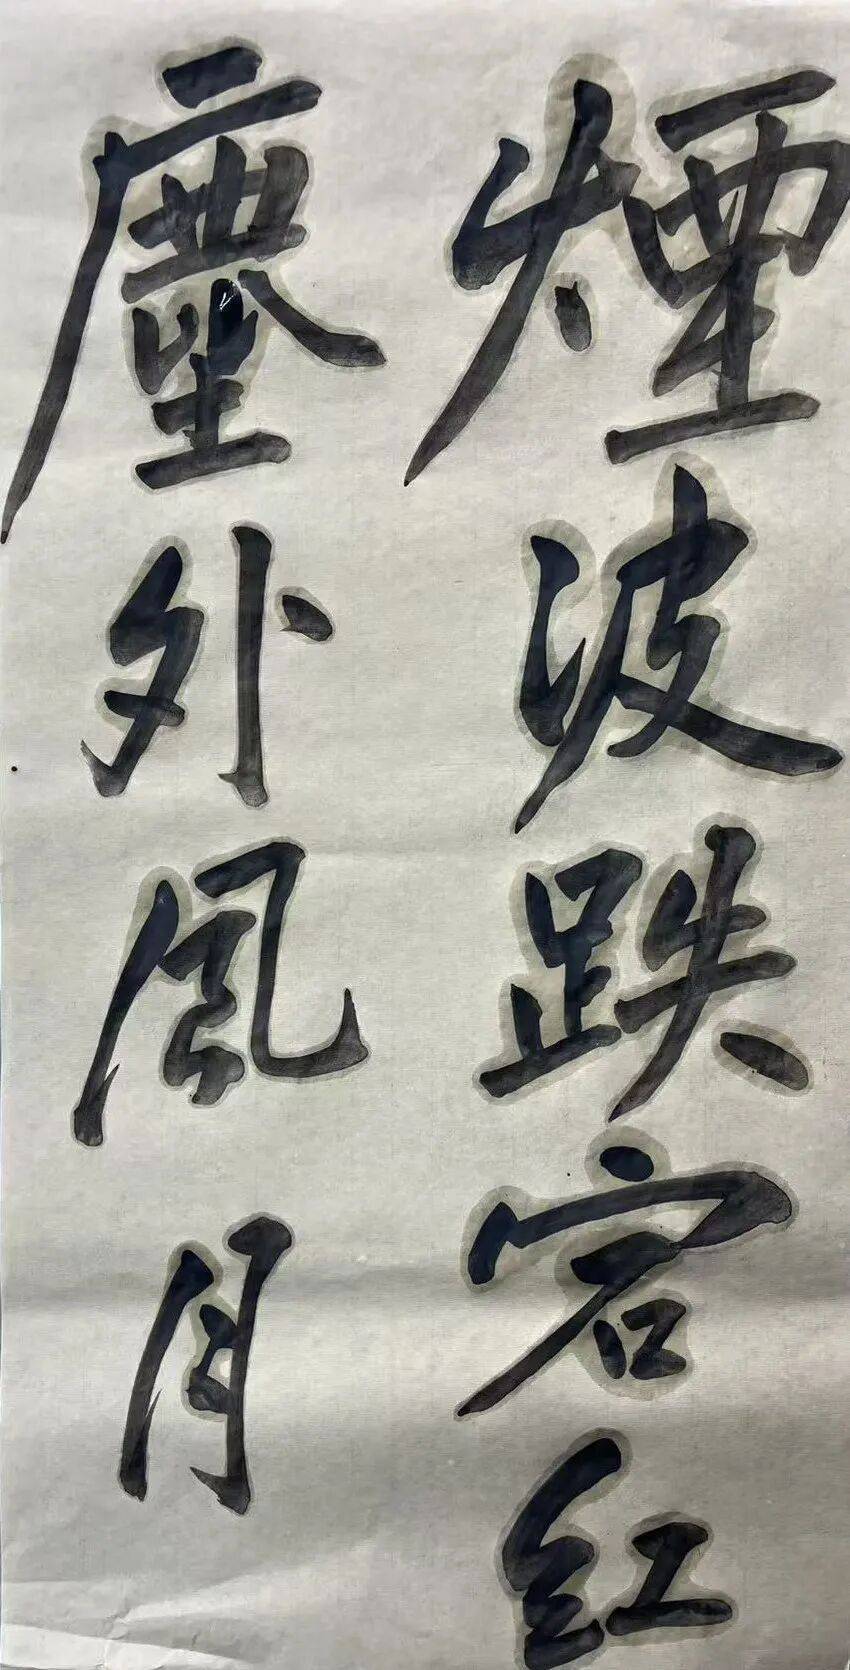 煙波跌宕紅
塵外風月